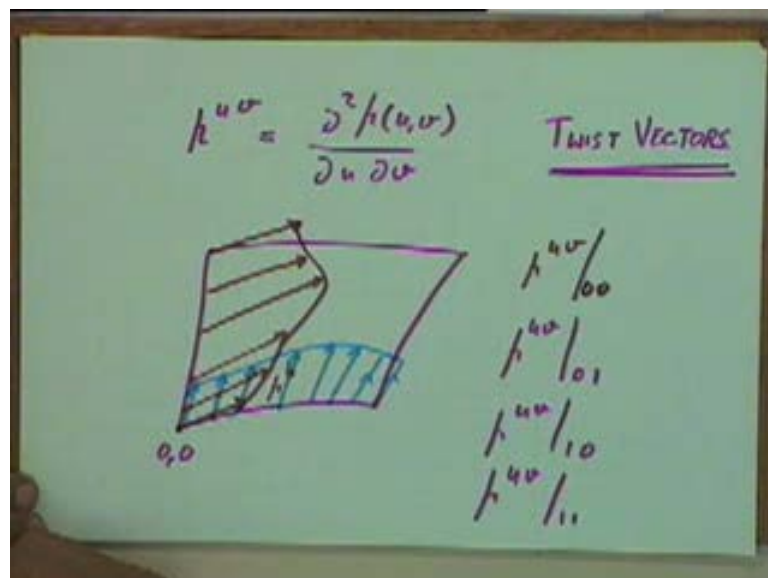 p^{uv} = ∂²p(u,v) / ∂u ∂v
TWIST VECTORS
p^{uv}/₀₀
p^{uv}/₀₁
p^{uv}/₁₀
p^{uv}/₁₁
p^v
0,0